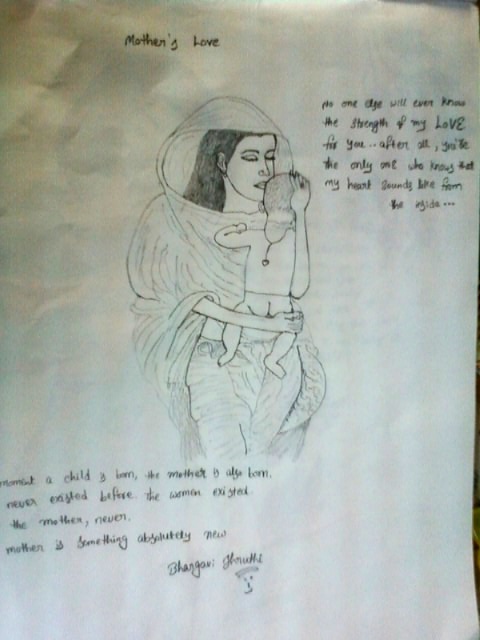 Mother's Love
No one else will ever know
the strength of my LOVE
for you.. after all, you're
the only one who knows that
my heart sounds like from
the inside...
moment a child is born, the mother is also born.
never existed before. The women existed
the mother, never.
mother is something absolutely new
Bhargavi Shruthi